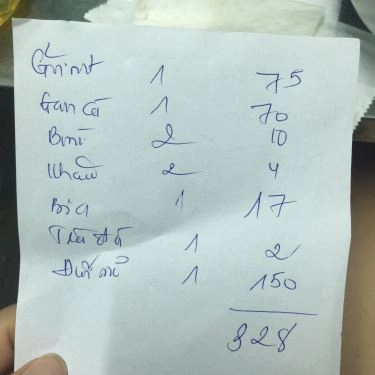 1 75
Gan cá 1 70
Bún 2 10
Khăn 2 4
Bia 1 17
Trà đá 1 2
1 150
328